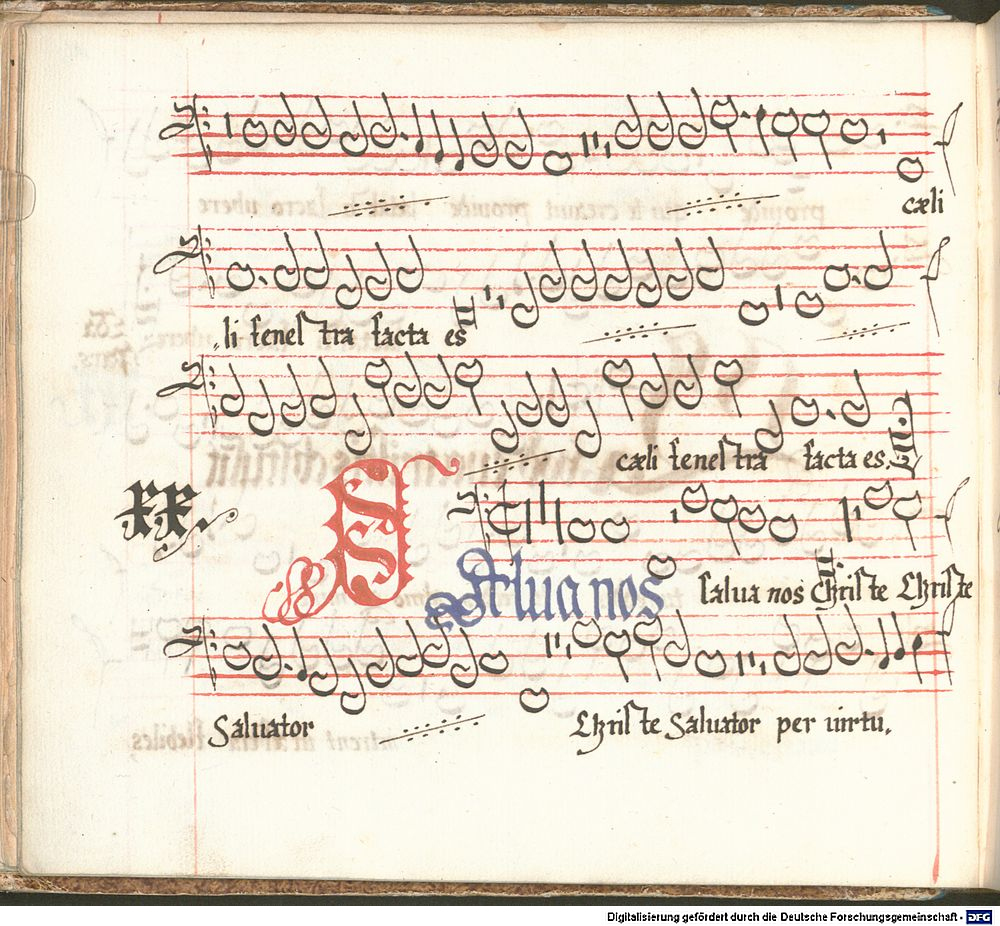 cæli
li fenestra facta es
cæli fenestra facta es.
xx.
SAlua nos salua nos Christe Christe
Saluator Christe Saluator per uirtu.
Digitalisierung gefördert durch die Deutsche Forschungsgemeinschaft - DFG